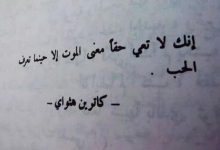 إنك لا تعي حقاً معنى الموت إلا حينما تعرف
الحب .
– كاترين هثواي-